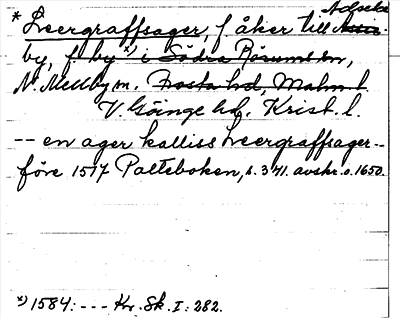 * Leergraffsager, f åker till Adseke
by, f by x) i Södra Rörums sn,
N. Mellby sn. Frosta hd, Malm. l.
V. Göinge hd. Krist. l.
-- en ager kalliss Leergraffsager --
före 1517 Palteboken, s. 341. avskr. o. 1650.
x) 1584: --- Kr. Sk. I: 282.